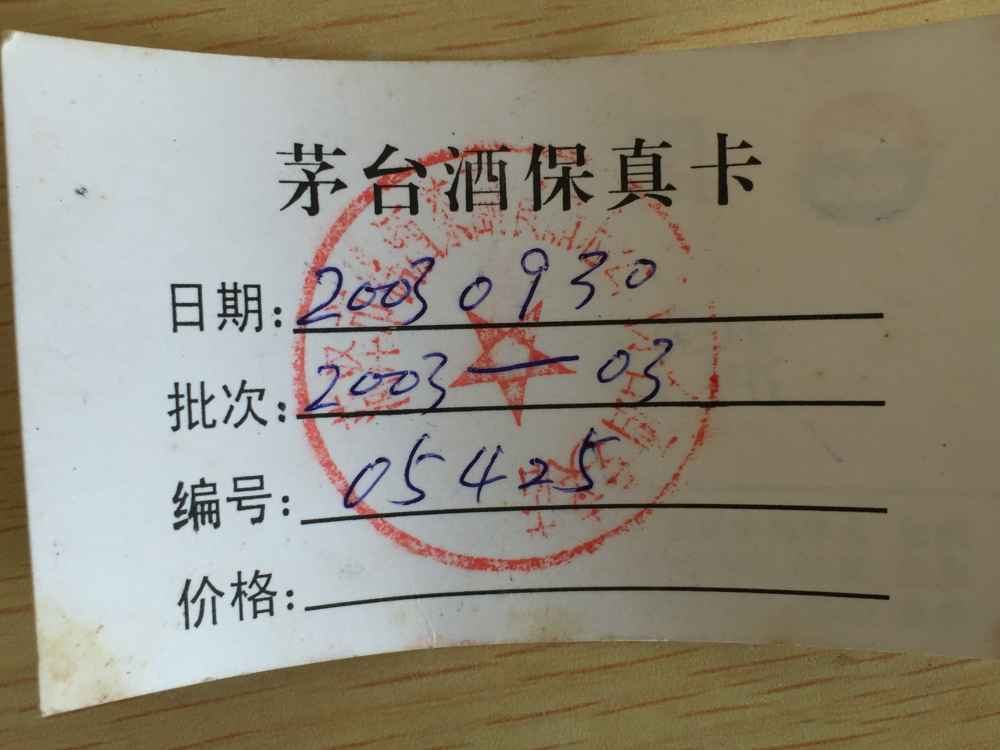 茅台酒保真卡
日期: 20030930
批次: 2003—03
编号: 05425
价格: